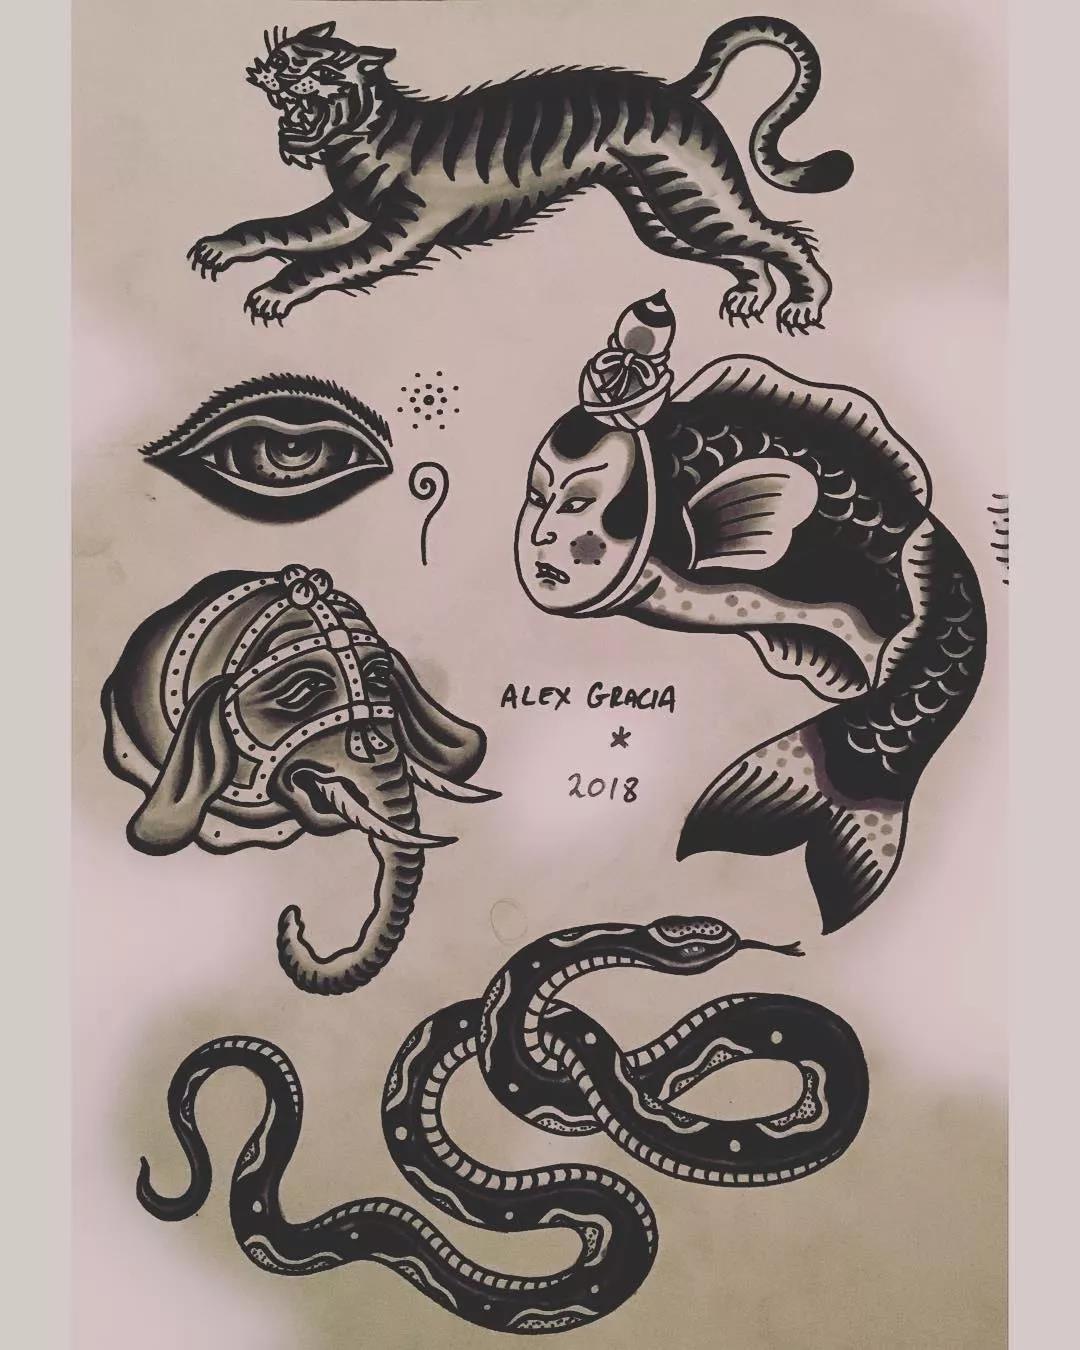 ALEX GRACIA
*
2018